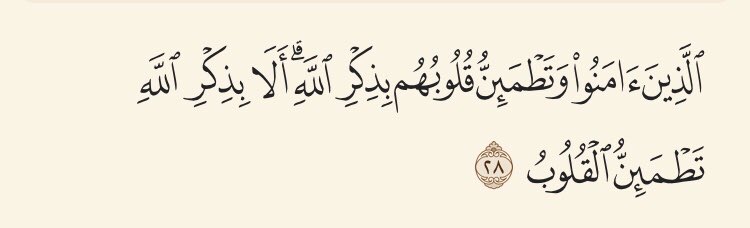 ٱلَّذِينَ ءَامَنُوا۟ وَتَطْمَئِنُّ قُلُوبُهُم بِذِكْرِ ٱللَّهِ ۗ أَلَا بِذِكْرِ ٱللَّهِ
تَطْمَئِنُّ ٱلْقُلُوبُ ٢٨